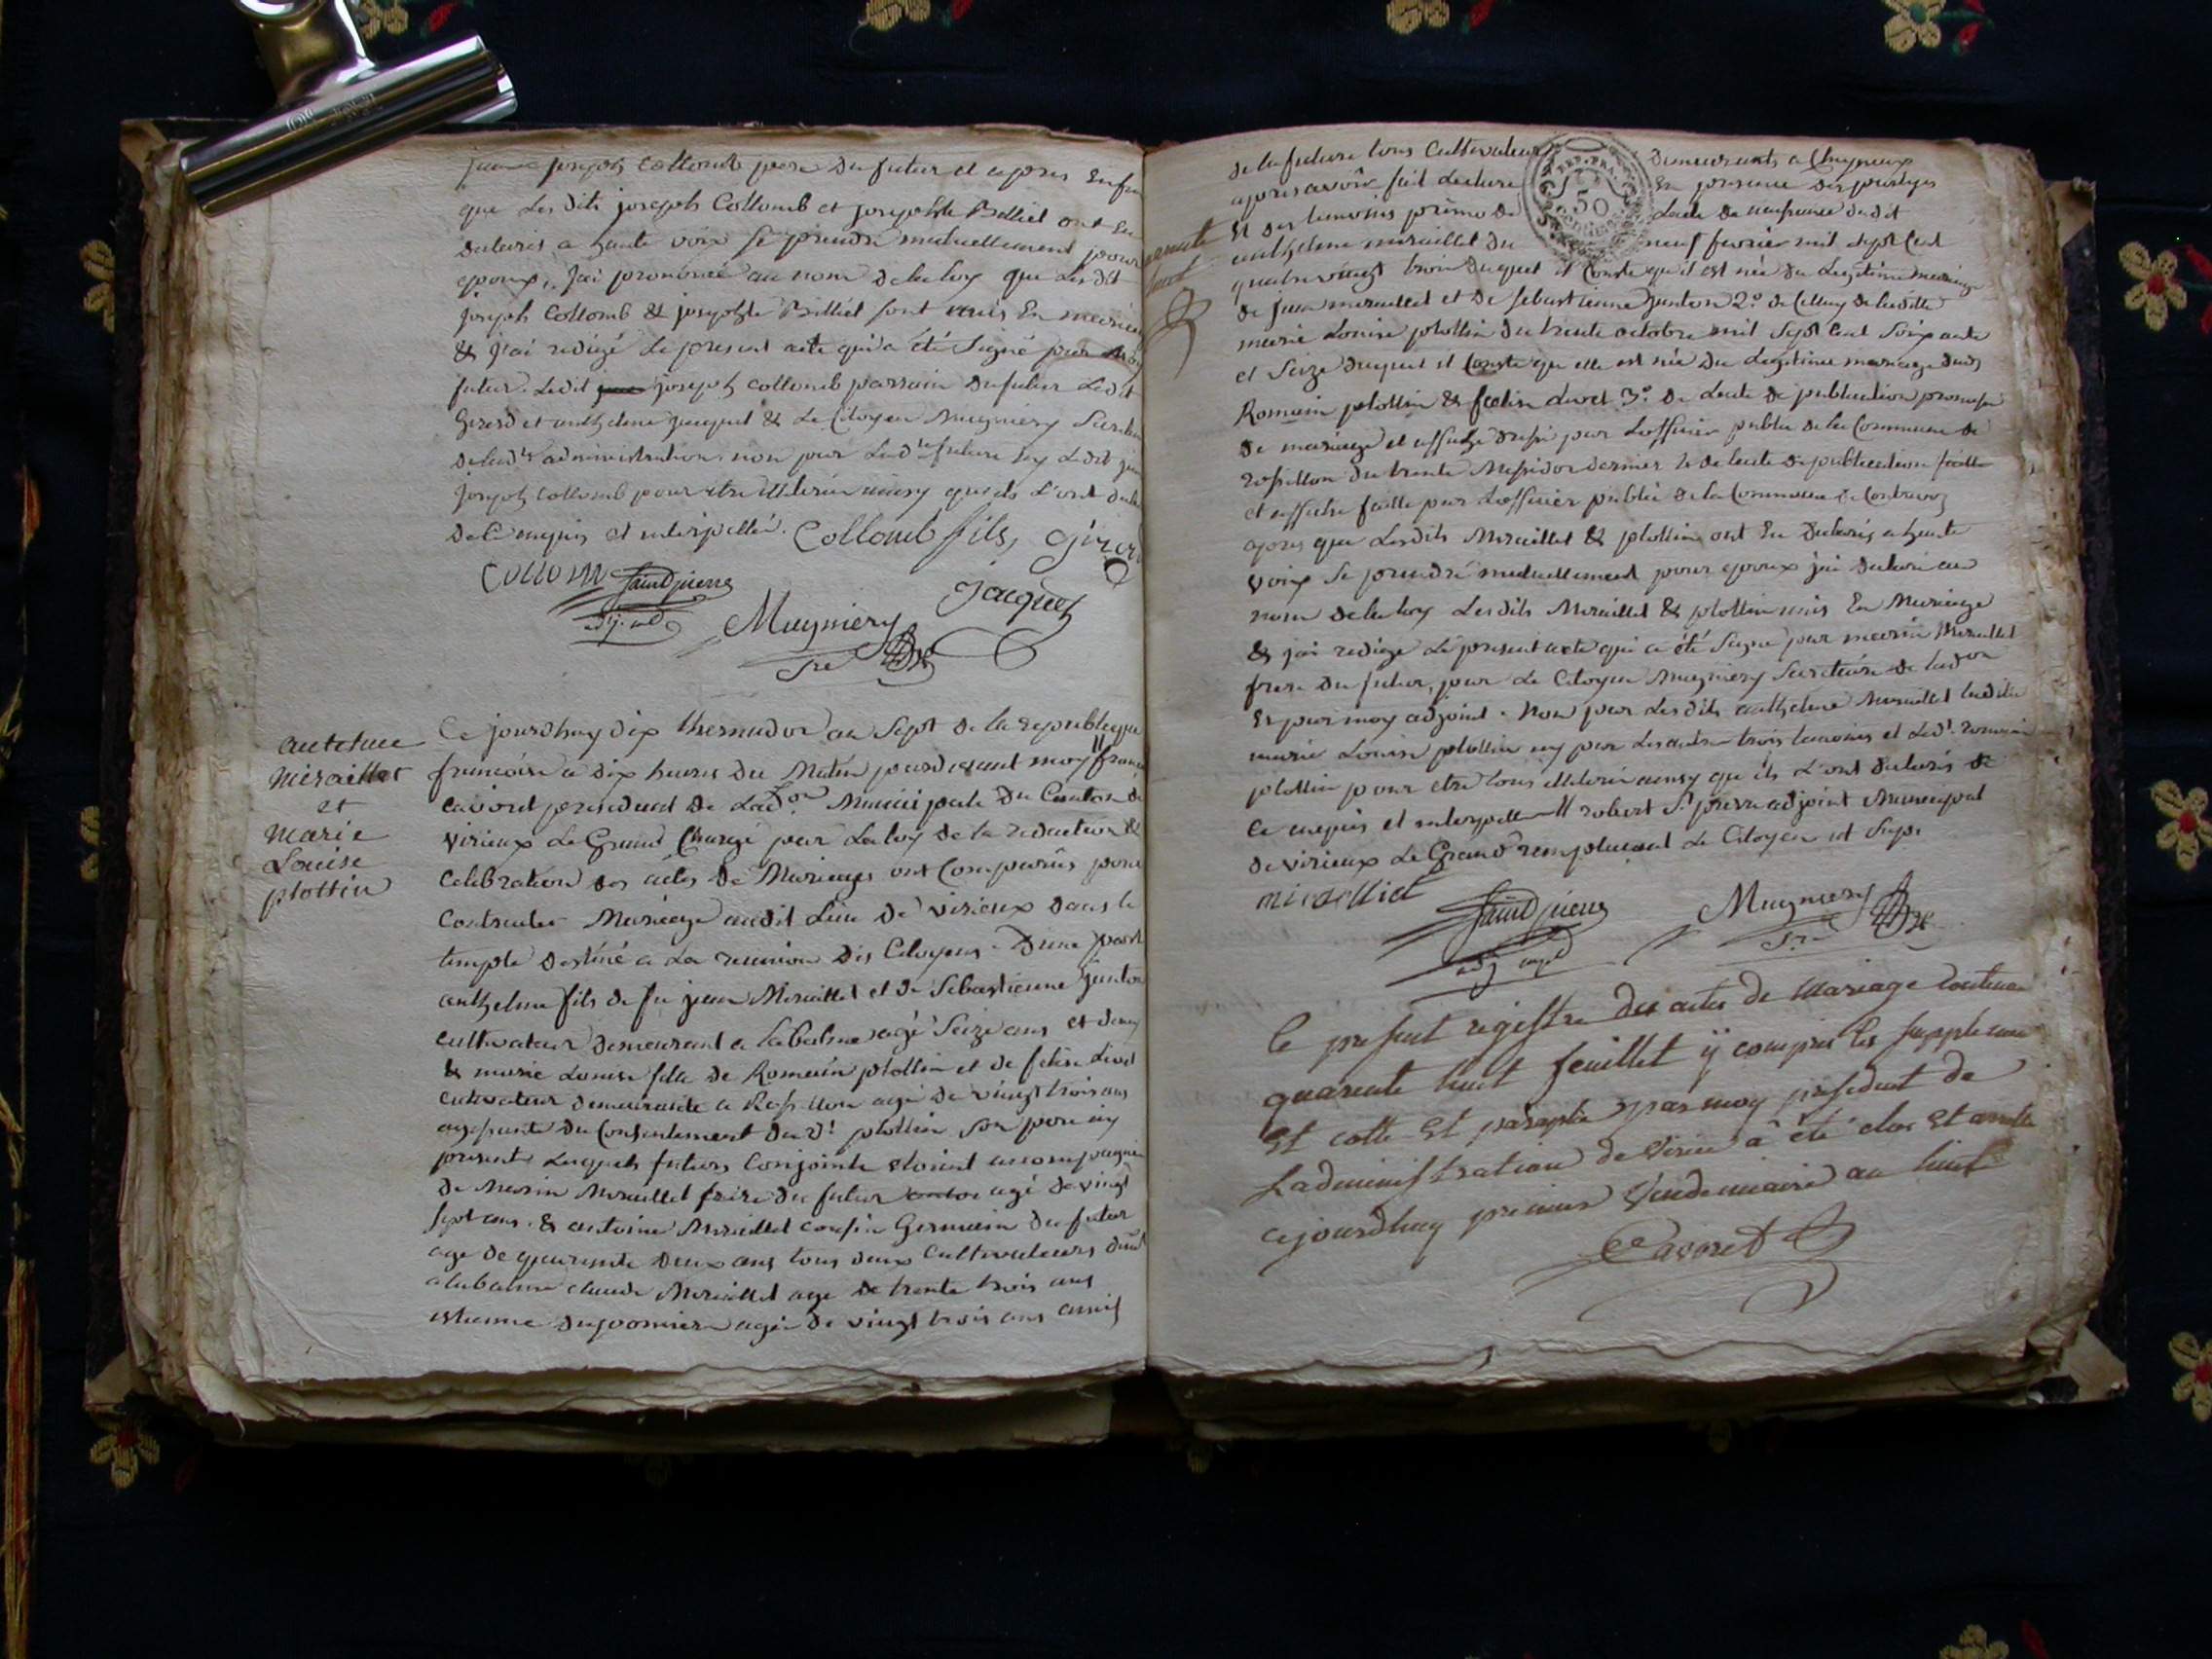 joseph Collomb pere du futur et apres
que Les dits joseph Collomb et josephte Billiet ont Eu
declarés a haute voix se prendre mutuellement pour
epoux, j'ai prononcé au nom de la loy que Les dit
joseph Collomb & josephte Billiet sont unis En
& j'ai redigé Le present acte qui a été signé par
futur. Ledit joseph collomb parrain du futur Ledit
Girerd et anthelme jacquet & Le Citoyen Mugniery
de lad.te administration non par Lad.te future ny Ledit
joseph collomb pour etre illiteré ainsy quils L'ont
de ce enquis et interpellé. Collomb fils,
Collom Saint pierre
jacquet
Mugniery
Sre
anthelme
Miraillet
et
Marie
Louise
plottin
Ce jourdhuy dix thermidor an Sept de la republique
francoise a dix heures du Matin pardevant moy //
cavoret president de Lad.on Municipale du Canton de
virieux Le Grand Chargé par La loy de la redaction &
Celebration des actes de Mariages ont Comparus pour
Contracter Mariage audit Lieu de virieux dans le
temple destiné a La reunion des Citoyens. D'une part
anthelme fils de fu jean Miraillet et de Sebastienne
cultivateur demeurant a Labalme agé Seize ans et demy
& marie Louise fille de Romain plottin et de
cultivateur demeurante a Rossillon agé de vingt trois ans
du Consentement dud.t plottin son pere icy
present Lesquels futurs Conjoints etoient accompagnés
de Marin Miraillet frere du futur agé de vingt
sept ans. & antoine Miraillet cousin Germain du futur
agé de quarente deux ans tous deux Cultivateurs
a labalme claude Miraillet agé de trente trois ans
estienne agé de vingt trois ans amis
de la future tous Cultivateurs demeurants a Cheyneux
apres avoir fait Lecture En presence des parties
Et des temoins primo de Lacte de naissance dudit
anthelme miraillet du neuf fevrier mil sept Cent
quatre vingt trois duquel il Conste qu'il est née du Legitime mariage
de jean miraillet et de sebastienne 2.o de Celluy de ladite
marie Louise plottin du trente octobre mil Sept Cent Soixante
et Seize duquel il Conste que elle est née du Legitime mariage dud.
Romain plottin & 3.o de Lacte de publication promesse
de mariage et affiche par Lofficier public de la Commune de
rossillon du trente Messidor dernier de lacte de publication faitte
et affiche faitte par Lofficier public de la Commune de Contrevoz
apres que Lesdits Miraillet & plottin ont Eu declarés a haute
voix Se prendre mutuellement pour epoux j'ai declaré au
nom de la loy Lesdits Miraillet & plottin unis En Mariage
& j'ai redigé Le present acte qui a été Signé par marin Miraillet
frere du futur, par Le Citoyen Mugniery Secretaire de lad.on
Et par moy adjoint. Non par Lesdits anthelme Miraillet ladite
marie Louise plottin ny par Les autres trois temoins et Led.t romain
plottin pour etre tous illiteré ainsy que ils L'ont declarés de
Ce enquis et interpellé // robert St pierre adjoint Municipal
de virieux Le Grand remplacant Le Citoyen
miraillet
Saint pierre
Mugniery
Sre
REP. FRA.
50
quarente
huit
Ce present registre des actes de Mariage Contenant
quarente huit feuillet y compris les
Et cotté Et paraphé par moy president de
Ladministration de Virieu a été clos Et arretté
cejourdhuy premier Vendemiaire an huit
Cavoret